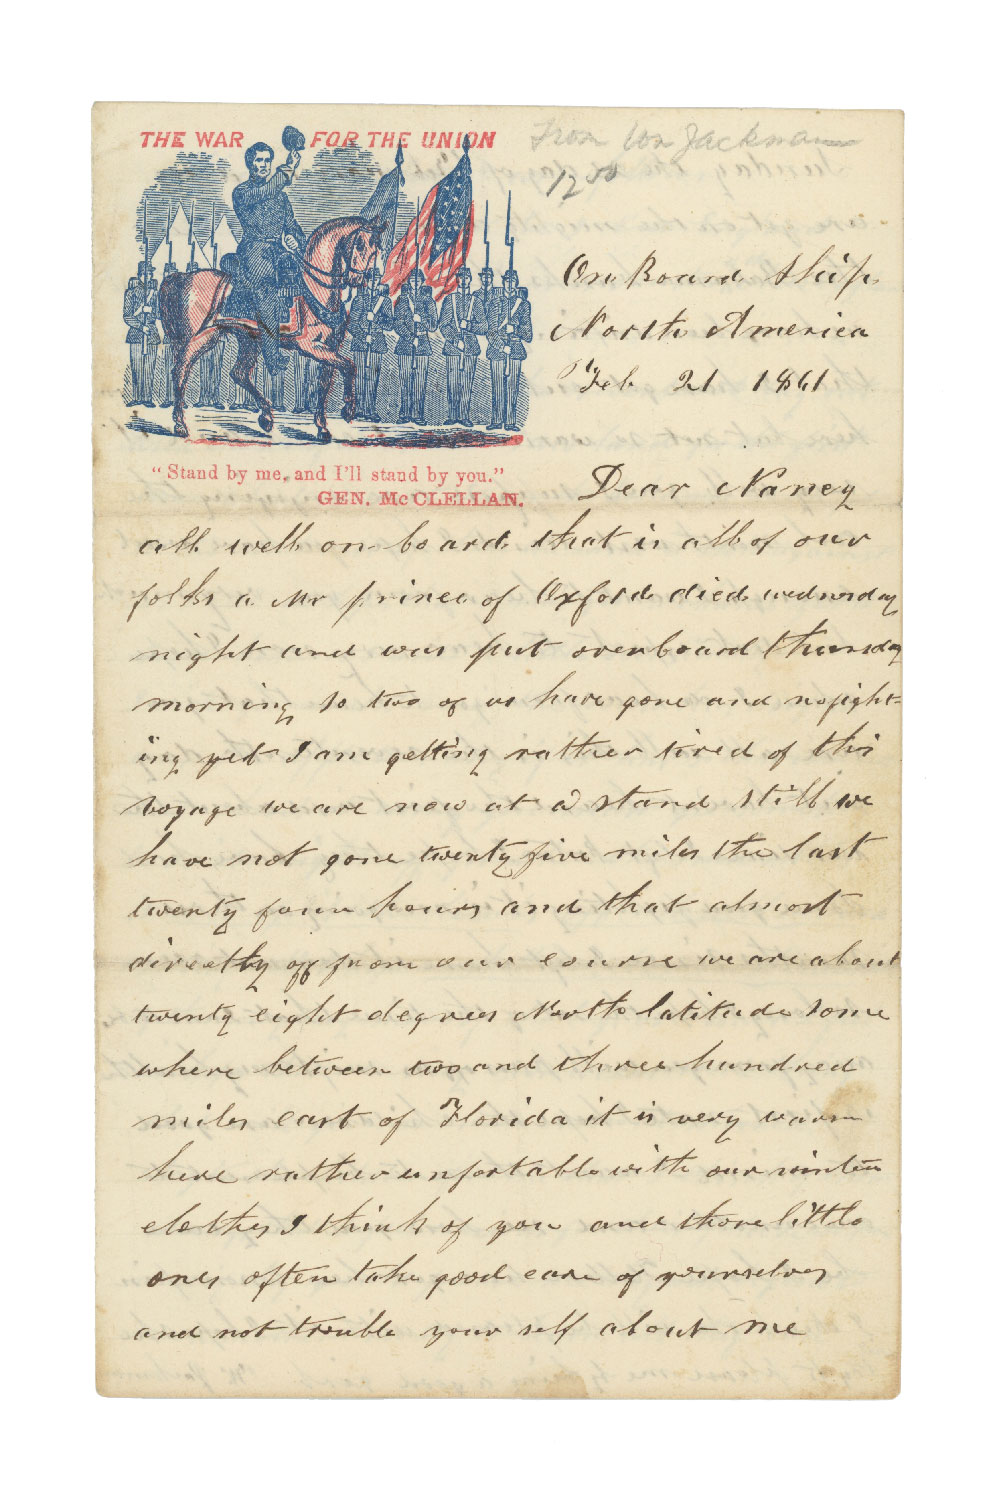 THE WAR FOR THE UNION
From Wm Jackman
12 00
On Board Ship
North America
Feb 21 1861
"Stand by me, and I'll stand by you."
GEN. McCLELLAN.
Dear Nancy
all well on board that is all of our
folks a Mr prince of Oxford died wednesday
night and was put overboard thursday
morning so two of us have gone and no fight-
ing yet I am getting rather tired of this
voyage we are now at a stand still we
have not gone twenty five miles the last
twenty four hours and that almost
directly off from our course we are about
twenty eight degrees North latitude some
where between two and three hundred
miles east of Florida it is very warm
here rather unfortable with our winter
clothes I think of you and those little
ones often take good care of yourselves
and not trouble your self about me